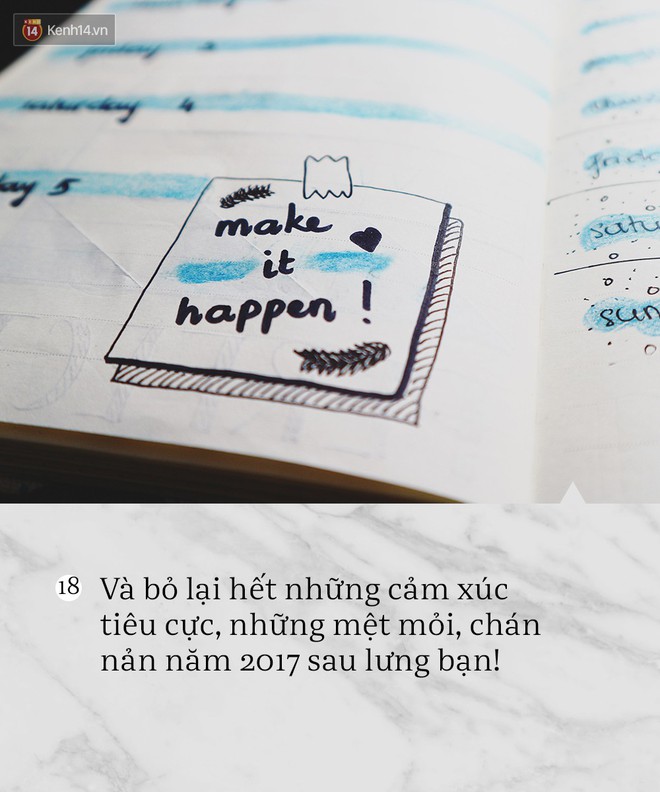 Kenh14.vn
saturday 4
day 5
make
it
happen!
18 Và bỏ lại hết những cảm xúc
tiêu cực, những mệt mỏi, chán
nản năm 2017 sau lưng bạn!